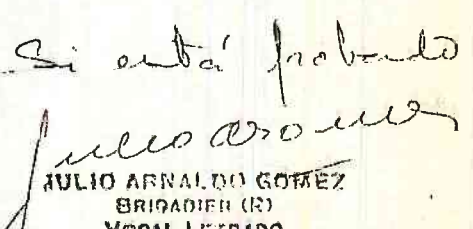 Si está probando
JULIO ARNALDO GOMEZ
BRIGADIER (R)
VOCAL LETRADO